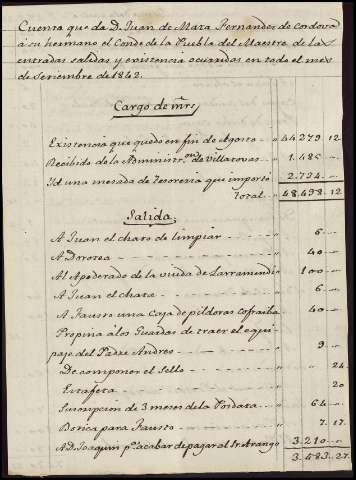 Cuenta que da D. Juan de Mata Fernandes de Cordova
a su hermano el Conde de la Puebla del Maestre de las
entradas salidas y existencia ocurridas en todo el mes
de Setiembre de 1842.
Cargo de mrs
Existencia que quedo en fin de Agosto " 44279. 12
Recibido de la Administr.on de Villatovas " 1.485 "
Yd una mesada de Tesoreria que importó 2.734 "
Total 48.498. 12
Salida
A Juan el charo de limpiar " 6 "
A Dorotea " 40 "
Al Apoderado de la viuda de Larramendi " 100 "
A Juan el chara " 6 "
A Fausto una Caja de pildoras Cofraiba " 40 "
Propina á los Guardas de traer el equi
paje del Padre Andres " 9 "
De componer el Sello " " 24
Estafeta " " 20
Suscripcion de 3 meses de la Posdata " 64 "
Botica para Fausto " 7. 17
A D. Joaquin p.a acabar de pagar al Sr. Arango 3.210 "
3.483. 27